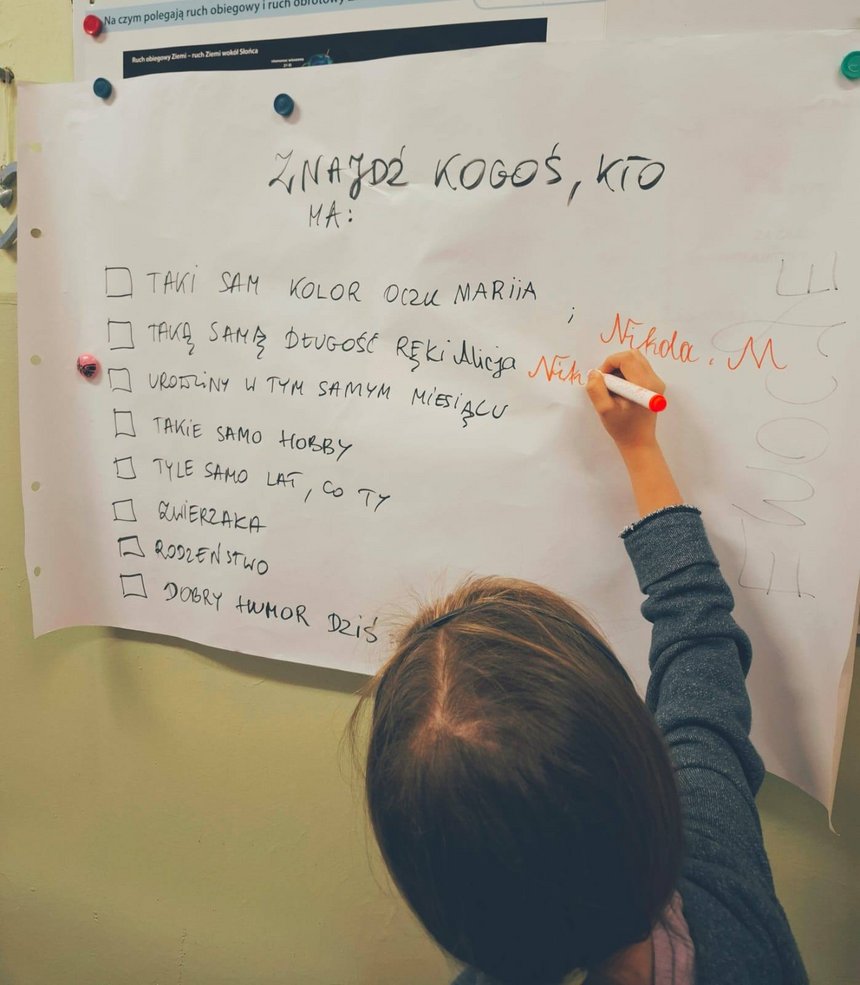 Na czym polegają ruch obiegowy i ruch obrotowy
Ruch obiegowy Ziemi – ruch Ziemi wokół Słońca
ZNAJDŹ KOGOŚ, KTO
MA:
TAKI SAM KOLOR OCZU MARIJA ,
Nikola . M
TAKĄ SAMĄ DŁUGOŚĆ RĘKI Alicja Nik
URODZINY W TYM SAMYM MIESIĄCU
TAKIE SAMO HOBBY
TYLE SAMO LAT, CO TY
ZWIERZAKA
RODZEŃSTWO
DOBRY HUMOR DZIŚ